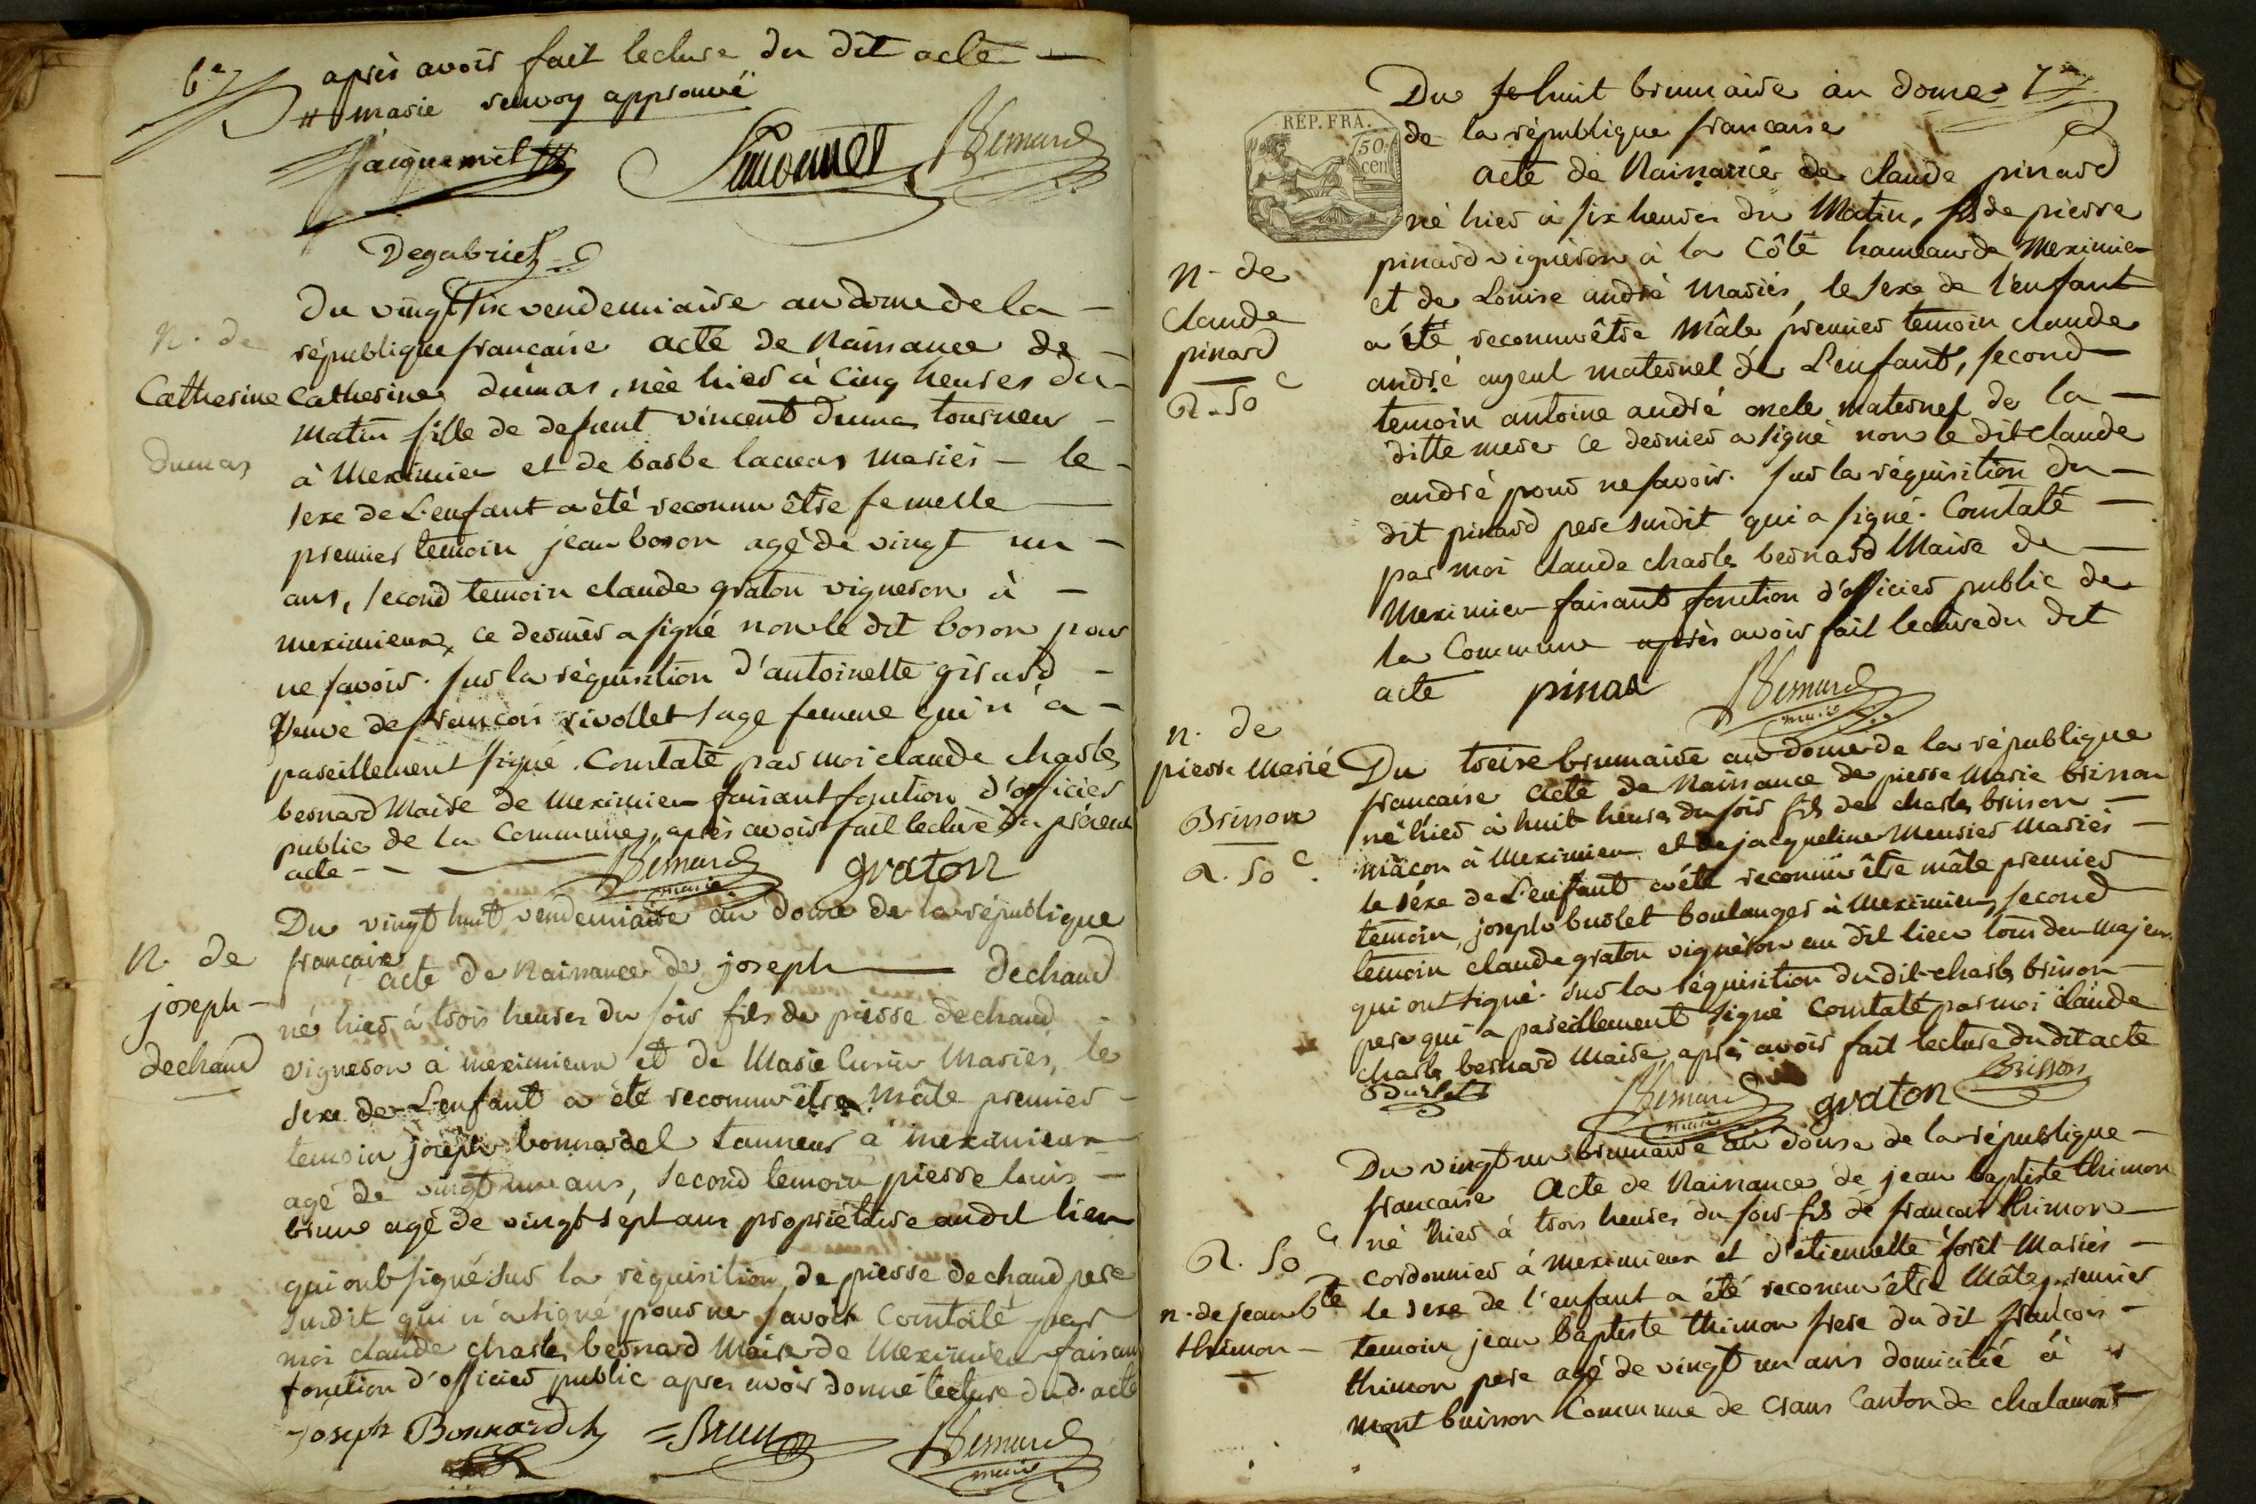 6e
après avoir fait lecture du dit acte
# marié renvoy approuvé
Jacquemet
Simonnet
Bernard
Degabriel
Du vingt six vendemiaire an douze de la
N. de
Catherine
Dumas
république francaise acte de Naissance de
Catherine dumas, née hier à cinq heures du
Matin fille de defunt vincent dumas tourneur
à Meximieu et de barbe Mariés - le
sexe de L'enfant a été reconnu être femelle
premier temoin jean boson agé de vingt un
ans, second temoin claude graton vigneron à
meximieux, ce dernier a signé non le dit boson pour
ne savoir. sur la réquisition d'antoinette girard
Veuve de francois rivollet sage femme qui n'a
pareillement signé. Constaté par moi claude charles
bernard Maire de Meximieu faisant fonction d'officier
public de la Commune, après avoir fait lecture du présent
acte
Bernard
maire
graton
Du vingt huit vendemiaire an douze de la république
N. de
joseph
dechaud
francaise
acte de Naissance de joseph dechaud
né hier à trois heures du soir fils de pierre dechaud
vigneron à meximieux et de Marie Mariés, le
sexe de L'enfant a été reconnu être Mâle premier
temoin joseph bonnardel tanneur à meximieux
agé de vingt un ans, second temoin pierre louis
brun agé de vingt sept ans propriétaire au dit lieu
qui ont signé sur la réquisition de pierre dechaud pere
susdit qui n'a signé pour ne savoir Constaté par
moi claude charles bernard Maire de Meximieu faisant
fonction d'officier public apres avoir donné lecture dud. acte
Joseph Bonnardel
Brun
Bernard
maire
7e
Du huit brumaire an douze
RÉP. FRA.
50
cen
de la république francaise
acte de Naissance de claude pinard
né hier à six heures du Matin, fils de pierre
N. de
Claude
pinard
R. 50 c
pinard vigneron à la Côte hameau de Meximieu
et de Louise andré Mariés, le sexe de l'enfant
a été reconnu être Mâle premier temoin claude
andré ayeul maternel de L'enfant, second
temoin antoine andré oncle maternel de la
ditte mere ce dernier a signé non le dit claude
andré pour ne savoir. sur la réquisition du
dit pinard pere susdit qui a signé. Constaté
par moi claude charles bernard Maire de
Meximieu faisant fonction d'officier public de
la Commune après avoir fait lecture du dit
acte
pinar
Bernard
maire
n. de
pierre Marie
Brisson
R. 50 c.
Du treize brumaire an douze de la république
francaise acte de Naissance de pierre Marie brisson
né hier à huit heures du soir fils de charles brisson
mâcon à Meximieu et de jacqueline Meusier Mariés
le séxe de L'enfant a été reconnu être mâle premier
temoin, joseph burlet boulanger à Meximieu, second
temoin claude graton vigneron au dit lieu tous deux Majeurs
qui ont signé. sur la réquisition du dit charles brisson
pere qui a pareillement signé Constaté par moi claude
charles bernard Maire après avoir fait lecture du dit acte
Burlet
Bernard
maire
graton
Brisson
Du vingt un brumaire an douse de la république
francaise Acte de Naissance de jean baptiste thimon
R. 50 c
n. de jean bte
thimon
né hier à trois heures du soir fils de francois thimon
cordonnier à meximieux et d'étiennette forêt Mariés
le sexe de l'enfant a été reconnu être Mâle premier
temoin jean baptiste thimon frere du dit francois
thimon pere agé de vingt un ans domicilié à
mont buisson Commune de Crans Canton de chalamont